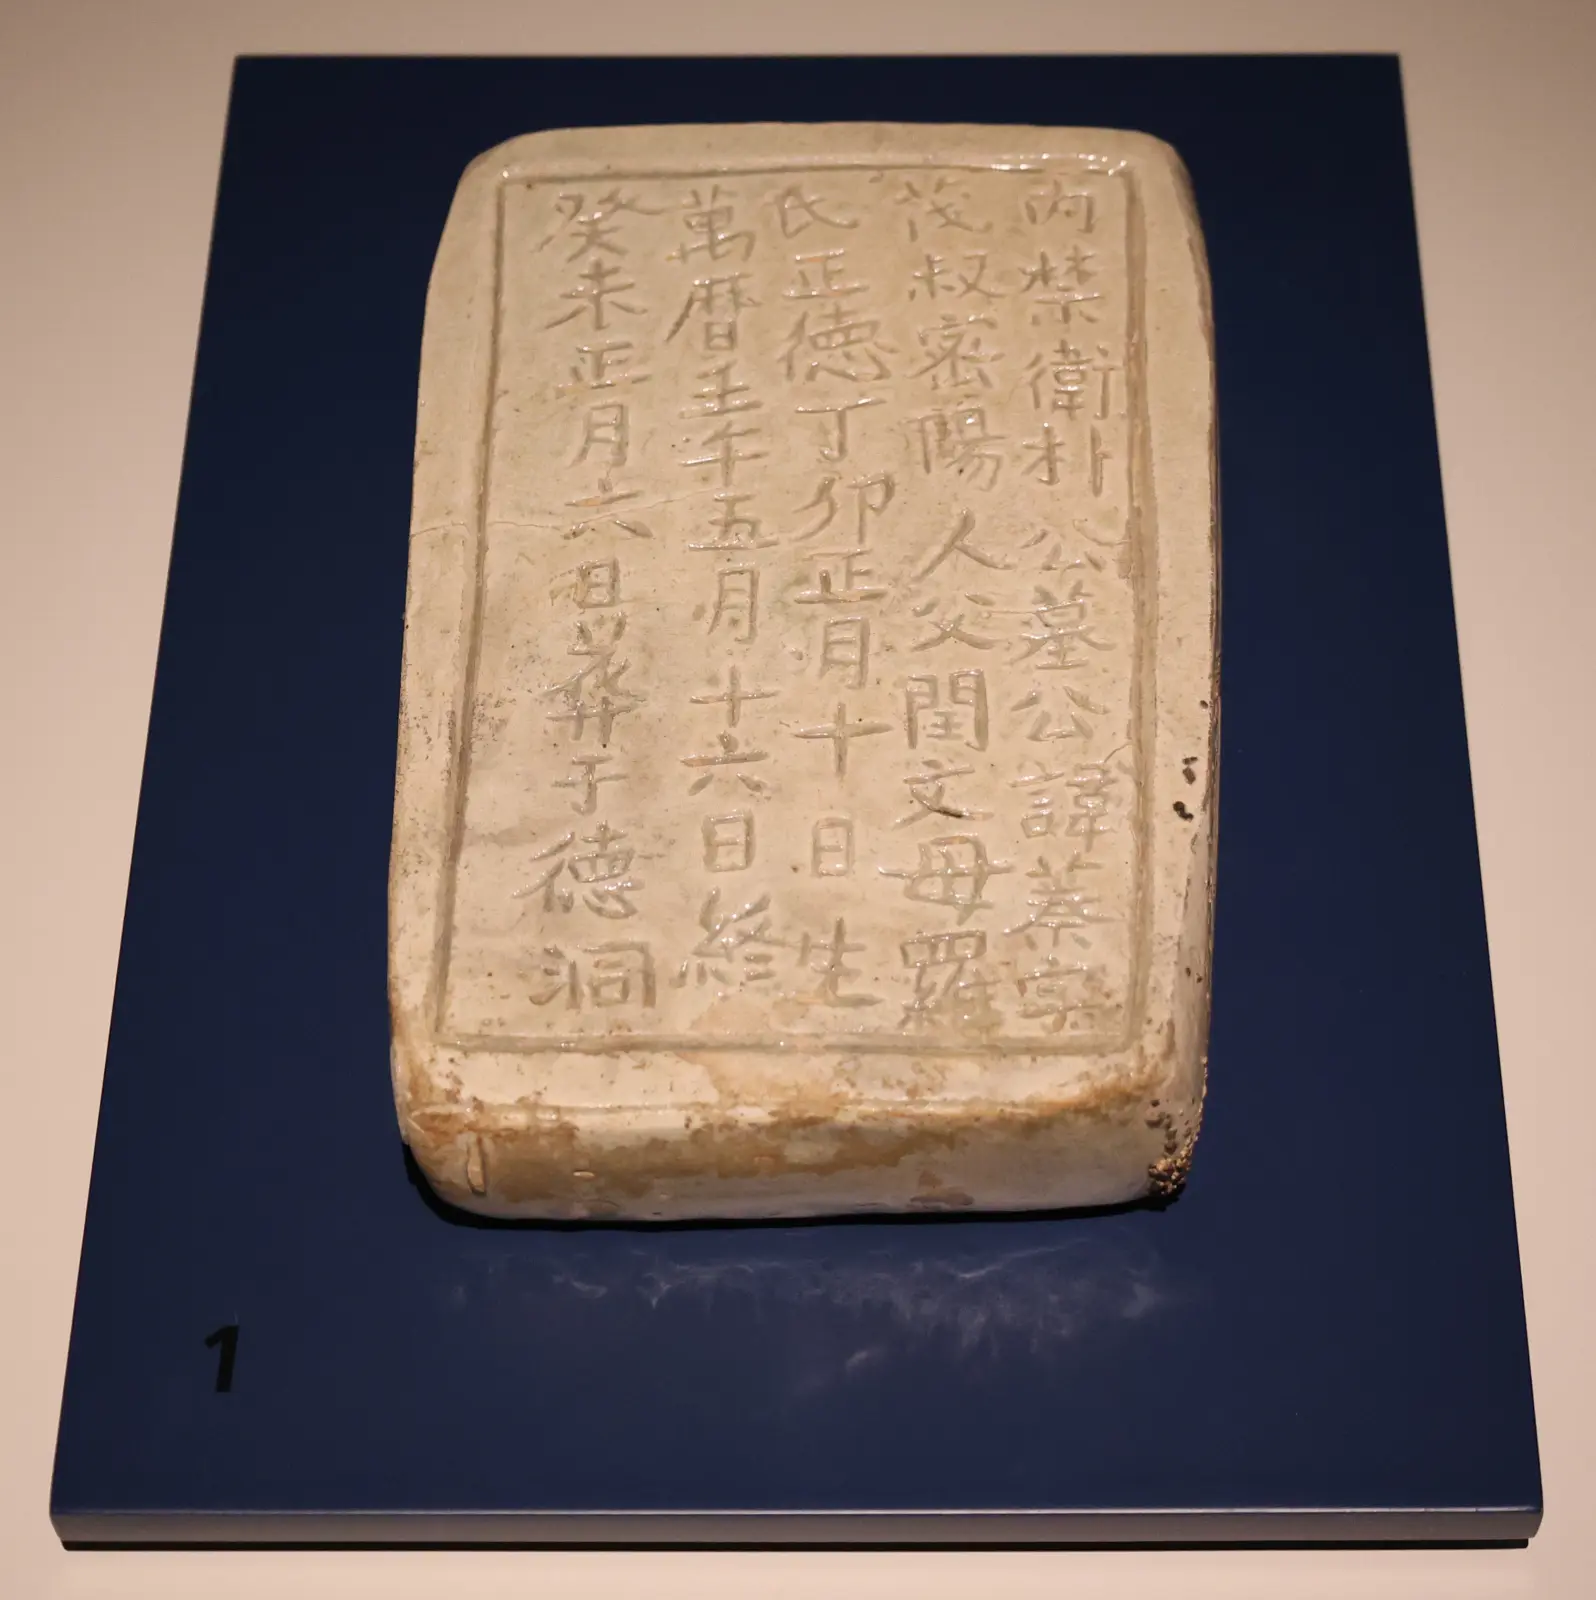 內禁衛朴公墓公諱蓁字
茂叔密陽人父閏文母羅
氏正德丁卯正月十日生
萬曆壬午五月十六日終
癸未正月六日葬于德洞
1